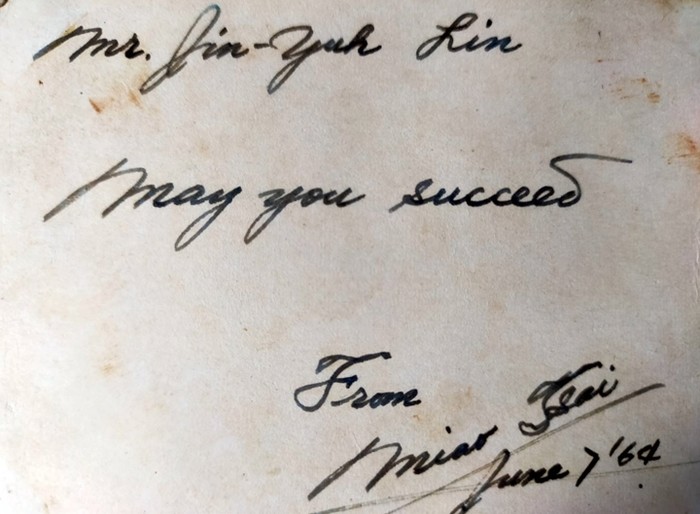 Mr. Jin-Yuh Lin
May you succeed
From
Miao Tsai
June 7 '64